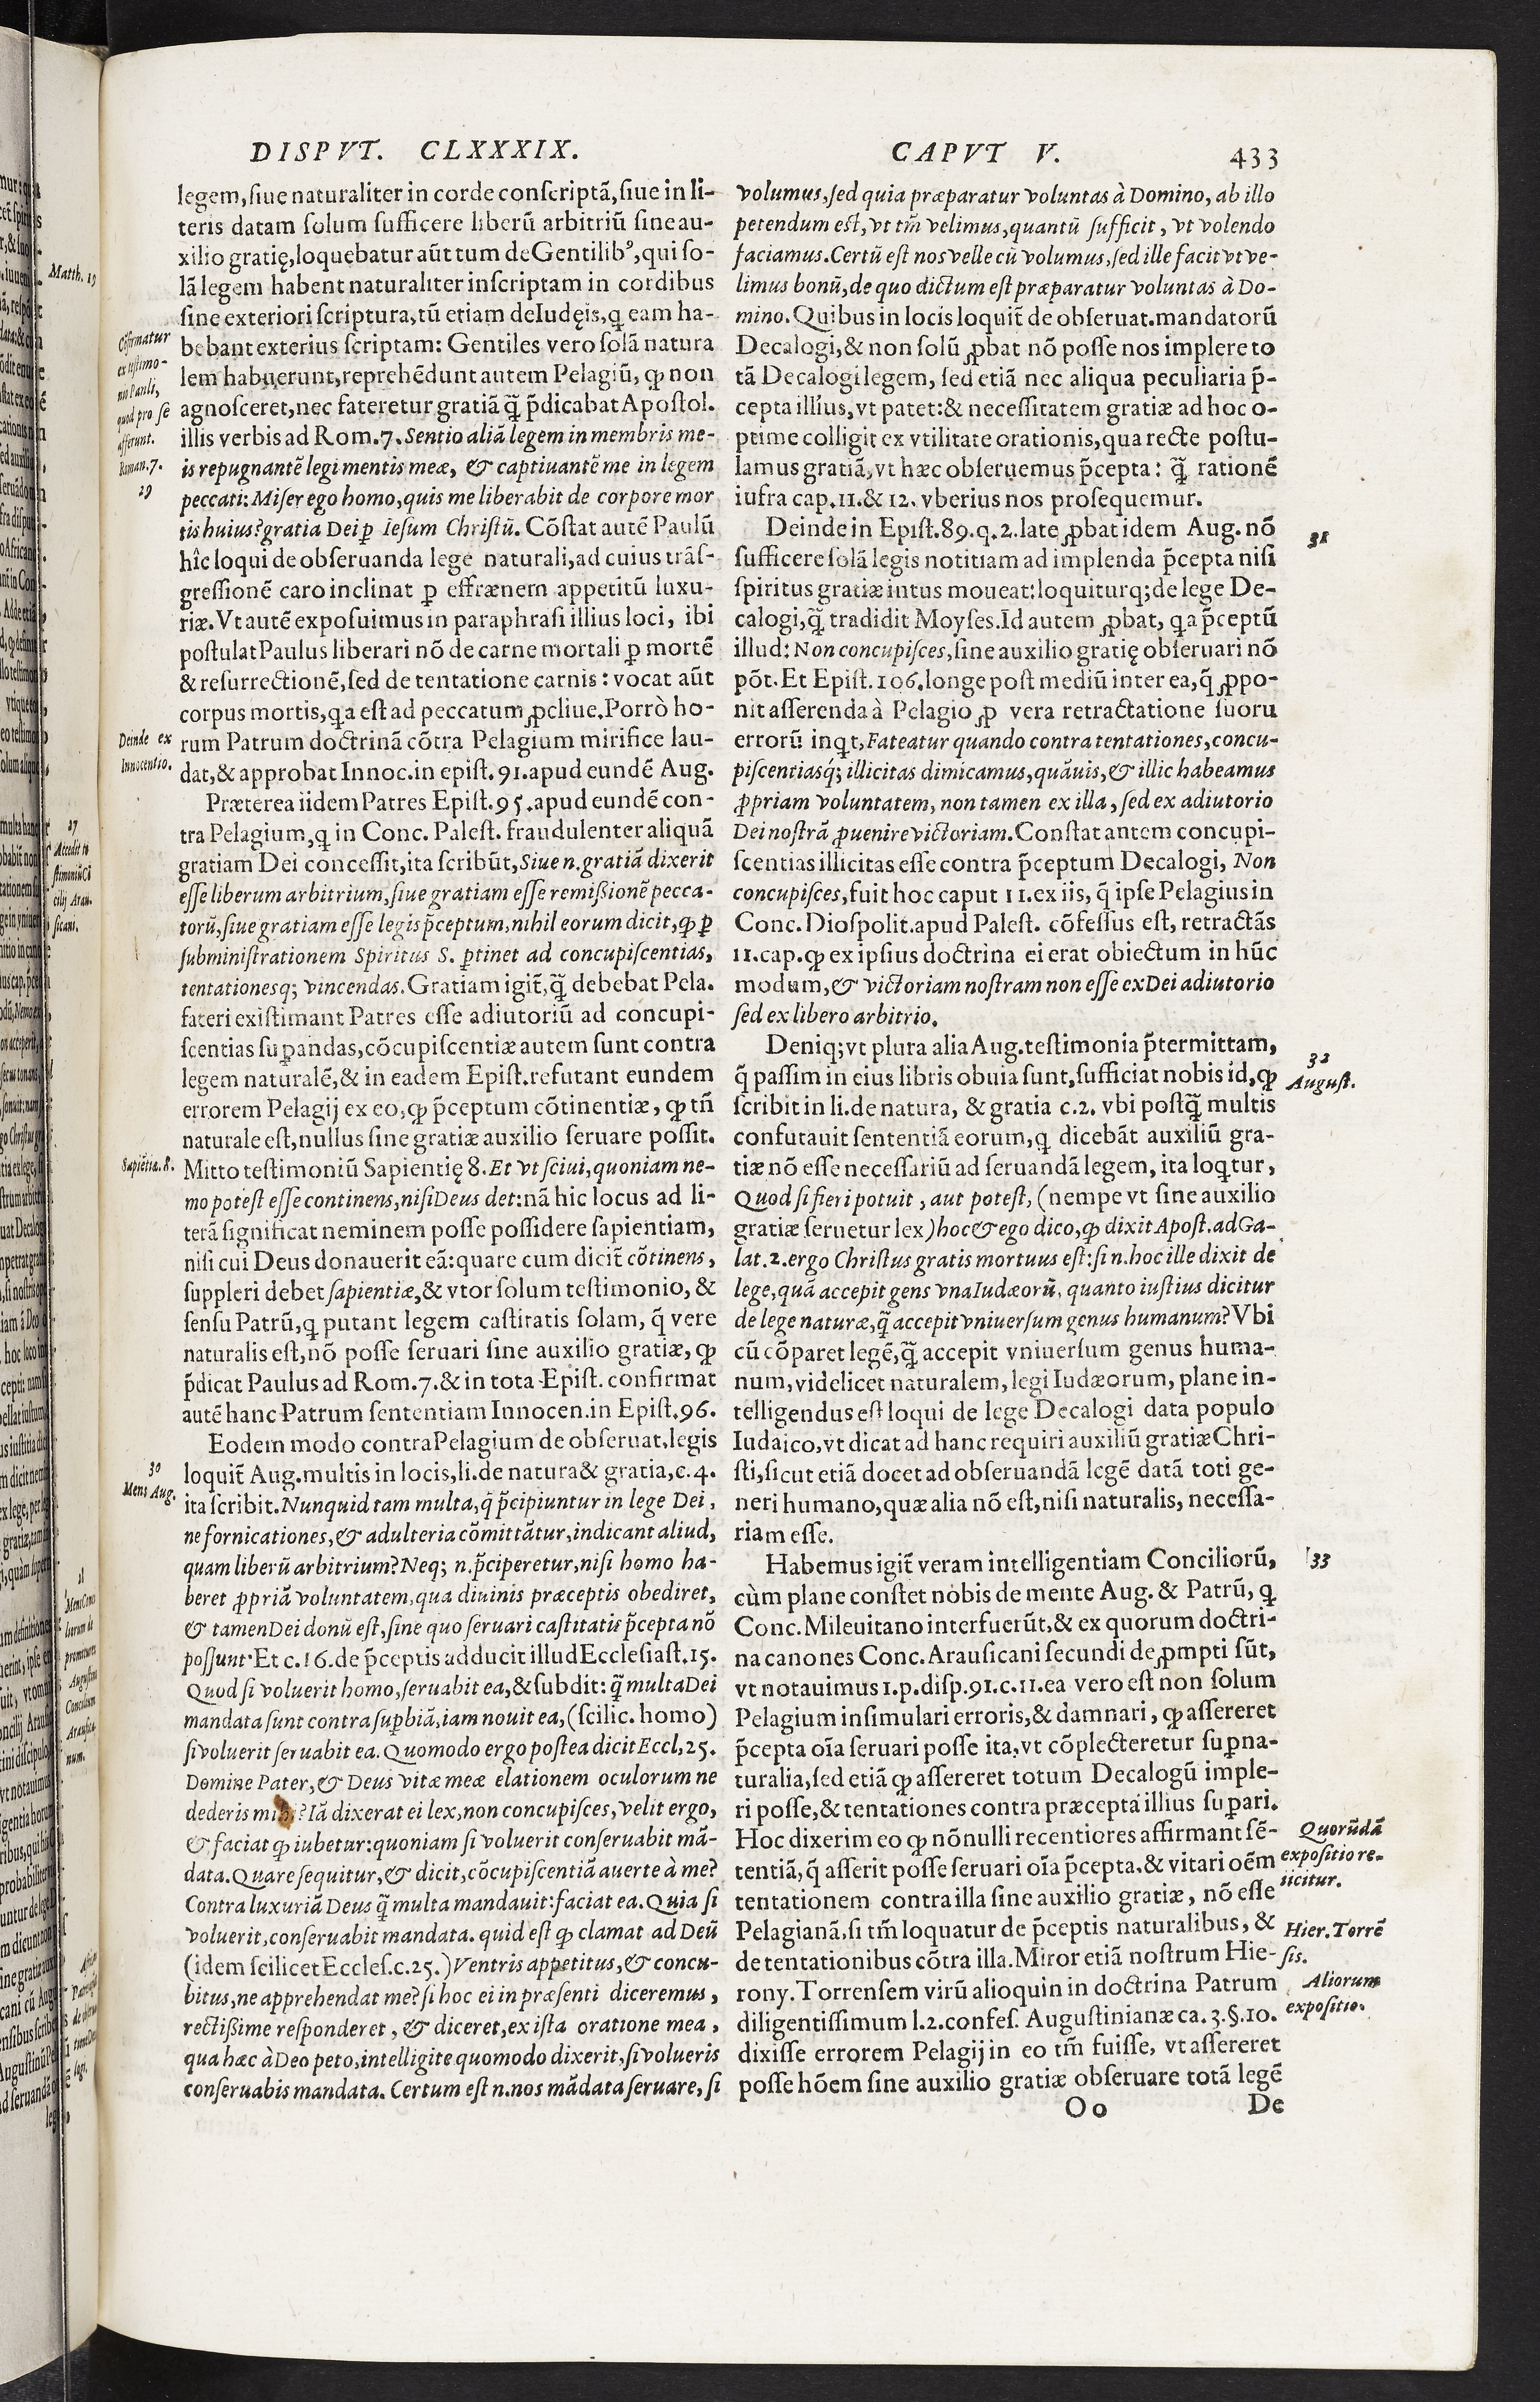 DISPVT. CLXXXIX.
legem, siue naturaliter in corde conscriptã, siue in li-
teris datam solum sufficere liberũ arbitriũ sine au-
xilio gratię, loquebatur aũt tum de Gentilibꝰ, qui so-
lã legem habent naturaliter inscriptam in cordibus
sine exteriori scriptura, tũ etiam de Iudęis, ꝗ eam ha-
bebant exterius scriptam: Gentiles vero solã natura
lem habuerunt, reprehẽdunt autem Pelagiũ, ꝙ non
agnosceret, nec fateretur gratiã q̃ p̃dicabat Apostol.
illis verbis ad Rom. 7. Sentio aliã legem in membris me-
is repugnantẽ legi mentis meæ, & captiuantẽ me in legem
peccati: Miser ego homo, quis me liberabit de corpore mor
tis huius? gratia Dei ꝑ Iesum Christũ. Cõstat autẽ Paulũ
hîc loqui de obseruanda lege naturali, ad cuius trãs-
gressionẽ caro inclinat ꝑ effrænem appetitũ luxu-
riæ. Vt autẽ exposuimus in paraphrasi illius loci, ibi
postulat Paulus liberari nõ de carne mortali ꝑ mortẽ
& resurrectionẽ, sed de tentatione carnis: vocat aũt
corpus mortis, ꝗa est ad peccatum ꝓcliue. Porrò ho-
rum Patrum doctrinã cõtra Pelagium mirifice lau-
dat, & approbat Innoc. in epist. 91. apud eundẽ Aug.
Præterea iidem Patres Epist. 95. apud eundẽ con-
tra Pelagium, ꝗ in Conc. Palest. fraudulenter aliquã
gratiam Dei concessit, ita scribũt, Siue n. gratiã dixerit
esse liberum arbitrium, siue gratiam esse remißionẽ pecca-
torũ, siue gratiam esse legis p̃ceptum, nihil eorum dicit, ꝙ ꝑ
subministrationem Spiritus S. ꝑtinet ad concupiscentias,
tentationesq; vincendas. Gratiam igit̃, q̃ debebat Pela.
fateri existimant Patres esse adiutoriũ ad concupi-
scentias suꝑandas, cõcupiscentiæ autem sunt contra
legem naturalẽ, & in eadem Epist. refutant eundem
errorem Pelagij ex eo, ꝙ p̃ceptum cõtinentiæ, ꝙ tñ
naturale est, nullus sine gratiæ auxilio seruare possit.
Mitto testimoniũ Sapientię 8. Et vt sciui, quoniam ne-
mo potest esse continens, nisi Deus det: nã hic locus ad li-
terã significat neminem posse possidere sapientiam,
nisi cui Deus donauerit eã: quare cum dicit̃ cõtinens,
suppleri debet sapientiæ, & vtor solum testimonio, &
sensu Patrũ, ꝗ putant legem castitatis solam, q̃ vere
naturalis est, nõ posse seruari sine auxilio gratiæ, ꝙ
p̃dicat Paulus ad Rom. 7. & in tota Epist. confirmat
autẽ hanc Patrum sententiam Innocen. in Epist. 96.
Eodem modo contra Pelagium de obseruat. legis
loquit̃ Aug. multis in locis, li. de natura & gratia, c. 4.
ita scribit. Nunquid tam multa, q̃ p̃cipiuntur in lege Dei,
ne fornicationes, & adulteria cõmittãtur, indicant aliud,
quam liberũ arbitrium? Neq; n. p̃ciperetur, nisi homo ha-
beret ꝓpriã voluntatem, qua diuinis præceptis obediret,
& tamen Dei donũ est, sine quo seruari castitatis p̃cepta nõ
possunt. Et c. 16. de p̃ceptis adducit illud Ecclesiast. 15.
Quod si voluerit homo, seruabit ea, & subdit: q̃ multa Dei
mandata sunt contra suꝑbiã, iam nouit ea, (scilic. homo)
si voluerit seruabit ea. Quomodo ergo postea dicit Eccl, 25.
Domine Pater, & Deus vitæ meæ elationem oculorum ne
dederis mihi? Iã dixerat ei lex, non concupisces, velit ergo,
& faciat ꝙ iubetur: quoniam si voluerit conseruabit mã-
data. Quare sequitur, & dicit, cõcupiscentiã auerte à me?
Contra luxuriã Deus q̃ multa mandauit: faciat ea. Quia si
voluerit, conseruabit mandata. quid est ꝙ clamat ad Deũ
(idem scilicet Eccles. c. 25.) Ventris appetitus, & concu-
bitus, ne apprehendat me? si hoc ei in præsenti diceremus,
rectißime responderet, & diceret, ex ista oratione mea,
qua hæc à Deo peto, intelligite quomodo dixerit, si volueris
conseruabis mandata. Certum est n. nos mãdata seruare, si
Cõfirmatur
ex testimo-
nio Pauli,
quod pro se
afferunt.
Roman. 7.
29
Deinde ex
Innocentio.
Sapiẽtiæ. 8.
30
Mens Aug.
CAPVT V. 433
volumus, sed quia præparatur voluntas à Domino, ab illo
petendum est, vt tm̃ velimus, quantũ sufficit, vt volendo
faciamus. Certũ est nos velle cũ volumus, sed ille facit vt ve-
limus bonũ, de quo dictum est præparatur voluntas à Do-
mino. Quibus in locis loquit̃ de obseruat. mandatorũ
Decalogi, & non solũ ꝓbat nõ posse nos implere to
tã Decalogi legem, sed etiã nec aliqua peculiaria p̃-
cepta illius, vt patet: & necessitatem gratiæ ad hoc o-
ptime colligit ex vtilitate orationis, qua recte postu-
lamus gratiã, vt hæc obseruemus p̃cepta: q̃ rationẽ
iufra cap. 11. & 12. vberius nos prosequemur.
Deinde in Epist. 89. q. 2. late ꝓbat idem Aug. nõ
sufficere solã legis notitiam ad implenda p̃cepta nisi
spiritus gratiæ intus moueat: loquiturq; de lege De-
calogi, q̃ tradidit Moyses. Id autem ꝓbat, ꝗa p̃ceptũ
illud: Non concupisces, sine auxilio gratię obseruari nõ
põt. Et Epist. 106. longe post mediũ inter ea, q̃ ꝓpo-
nit asserenda à Pelagio ꝓ vera retractatione suoru
errorũ inqt, Fateatur quando contra tentationes, concu-
piscentiasq́; illicitas dimicamus, quãuis, & illic habeamus
ꝓpriam voluntatem, non tamen ex illa, sed ex adiutorio
Dei nostrã ꝓuenire victoriam. Constat antem concupi-
scentias illicitas esse contra p̃ceptum Decalogi, Non
concupisces, fuit hoc caput 11. ex iis, q̃ ipse Pelagius in
Conc. Diospolit. apud Palest. cõfessus est, retractãs
11. cap. ꝙ ex ipsius doctrina ei erat obiectum in hũc
modum, & victoriam nostram non esse ex Dei adiutorio
sed ex libero arbitrio.
Deniq; vt plura alia Aug. testimonia p̃termittam,
q̃ passim in eius libris obuia sunt, sufficiat nobis id, ꝙ
scribit in li. de natura, & gratia c. 2. vbi postq̃ multis
confutauit sententiã eorum, ꝗ dicebãt auxiliũ gra-
tiæ nõ esse necessariũ ad seruandã legem, ita loꝗtur,
Quod si fieri potuit, aut potest, (nempe vt sine auxilio
gratiæ seruetur lex) hoc & ego dico, ꝙ dixit Apost. ad Ga-
lat. 2. ergo Christus gratis mortuus est: si n. hoc ille dixit de
lege, quã accepit gens vna Iudæorũ, quanto iustius dicitur
de lege naturæ, q̃ accepit vniuersum genus humanum? Vbi
cũ cõparet legẽ, q̃ accepit vniuersum genus huma-
num, videlicet naturalem, legi Iudæorum, plane in-
telligendus est loqui de lege Decalogi data populo
Iudaico, vt dicat ad hanc requiri auxiliũ gratiæ Chri-
sti, sicut etiã docet ad obseruandã legẽ datã toti ge-
neri humano, quæ alia nõ est, nisi naturalis, necessa-
riam esse.
Habemus igit̃ veram intelligentiam Conciliorũ,
cùm plane constet nobis de mente Aug. & Patrũ, ꝗ
Conc. Mileuitano interfuerũt, & ex quorum doctri-
na canones Conc. Arausicani secundi deꝓmpti sũt,
vt notauimus 1. p. disp. 91. c. 11. ea vero est non solum
Pelagium insimulari erroris, & damnari, ꝙ assereret
p̃cepta oĩa seruari posse ita, vt cõplecteretur suꝑna-
turalia, sed etiã ꝙ assereret totum Decalogũ imple-
ri posse, & tentationes contra præcepta illius suꝑari.
Hoc dixerim eo ꝙ nõnulli recentiores affirmant sẽ-
tentiã, q̃ asserit posse seruari oĩa p̃cepta. & vitari oẽm
tentationem contra illa sine auxilio gratiæ, nõ esse
Pelagianã, si tm̃ loquatur de p̃ceptis naturalibus, &
de tentationibus cõtra illa. Miror etiã nostrum Hie-
rony. Torrensem virũ alioquin in doctrina Patrum
diligentissimum l. 2. confes. Augustinianæ ca. 3. §. 10.
dixisse errorem Pelagij in eo tm̃ fuisse, vt assereret
posse hõem sine auxilio gratiæ obseruare totã legẽ
Oo De
31
32
August.
33
Quorũdã
expositio re-
iicitur.
Hier. Torrẽ
sis.
Aliorum
expositio.
Matth. 19